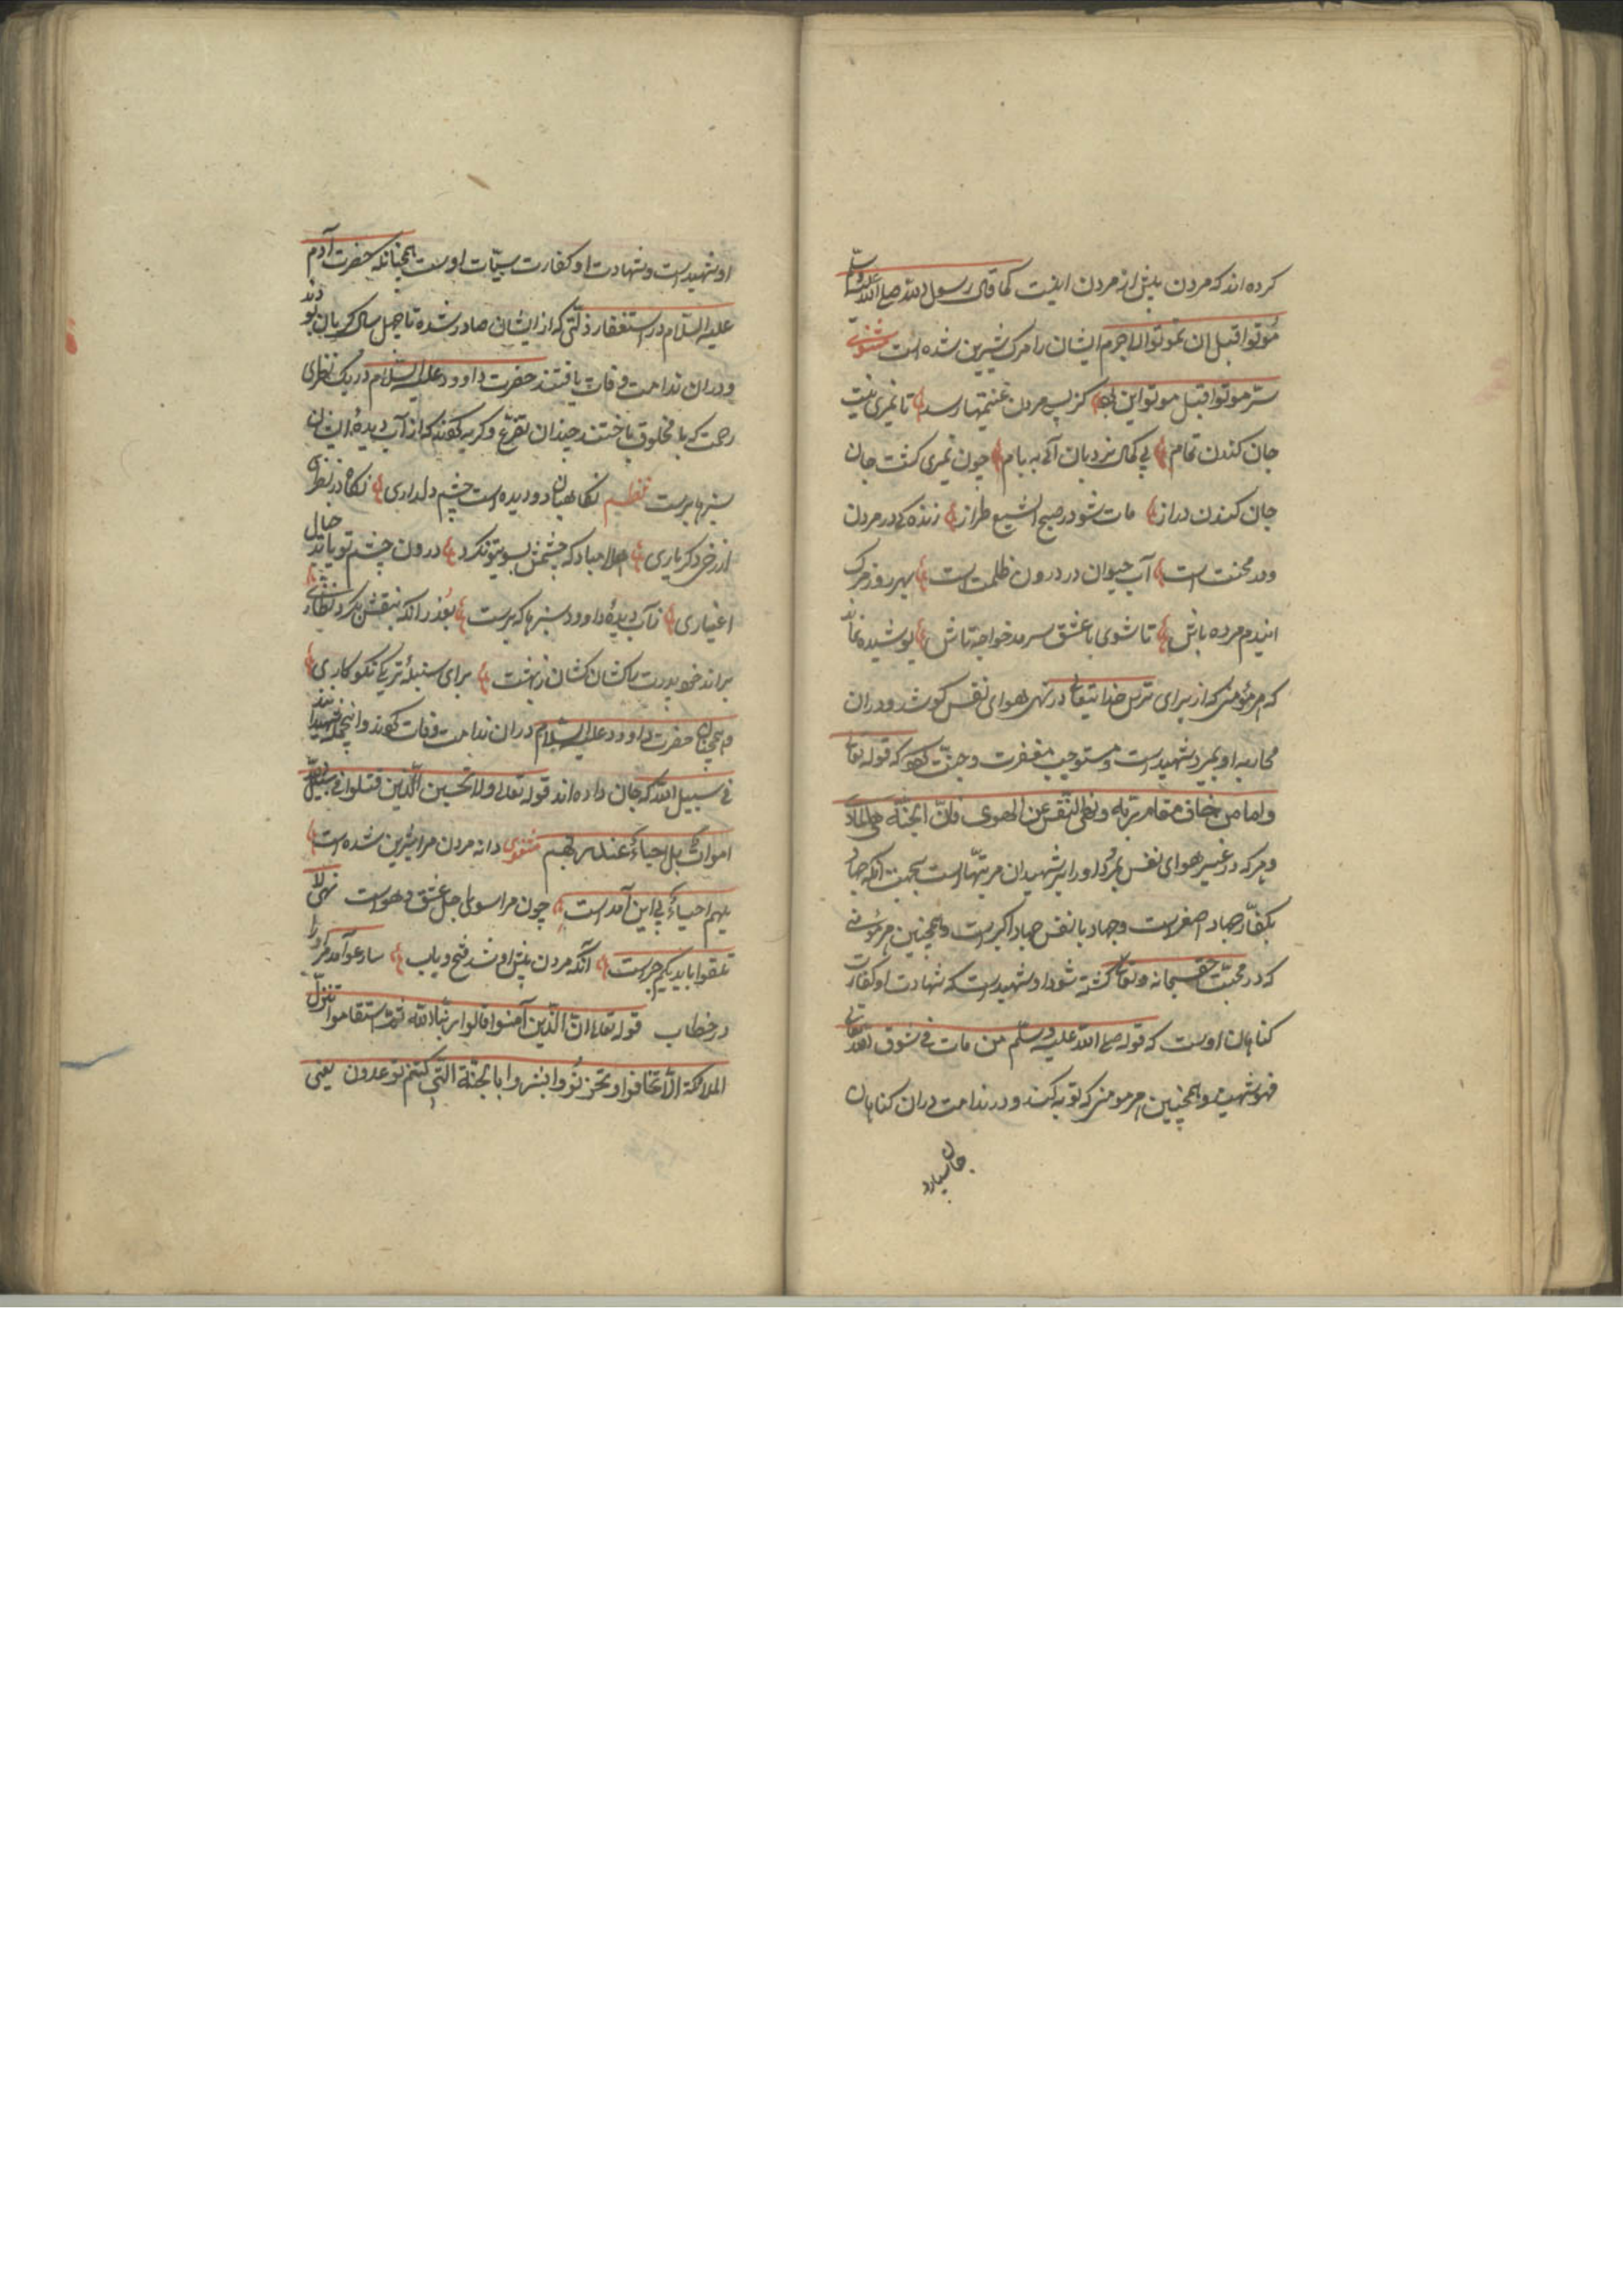 کرده اند که مردن پیش از مردن اینست کما قال رسول الله صلی الله علیه وسلم
مُوتوا قبل ان تموتوا لاجرم ایشان را مرک شیرین شده است مثنوی
سرّ موتوا قبل موتوا این بود کز پس مردن غنیمتها رسد تا نمیری نیست
جان کندن تمام بی کمال نردبان آئی به بام چون نمیری کشت جان
جان کندن دراز مات شو در صبح ای شمع طراز زنده کی در مردن
ودر محنت است آب حیوان در درون ظلمت است بهر روز مرک
ایندم مرده باش تا شوی با عشق سرمد خواجه تاش پوشیده نماند
که هر مؤمنی که از برای ترس خدایتعالی در نهی هوای نفس کوشد ودران
محاربه او بمیرد شهیدست ومستوجب مغفرت وجنّت که قوله تعالی
واما من خاف مقام ربه ونهی النّفس عن الهوی فانّ الجنّة هی الماوی
وهر که در غیر هوای نفس بمرد اورا بر شهیدان مرتبهاست بجهت آنکه جهاد
بکفّار جهاد اصغرست وجهاد با نفس جهاد اکبرست وهمچنین هر مؤمنی
که در محبّت حق سبحانه وتعالی کشته شود او شهیدست که شهادت او کفارت
کناهان اوست که قوله صلی الله علیه وسلّم من مات فی شوق الله تعالی
فهو شهید وهمچنین هر مومنی که توبه کند ودر ندامت دران کناهان
جان سپارد
او شهیدست وشهادت او کفارت سیّات اوست همچنانکه حضرت آدم
علیه السّلام در استغفار ذلّتی که از ایشان صادر شده تا چهل سال کریان بودند
ودران ندامت وفات یافتند حضرت داوود علیه السّلام در یک نظری
رحمت که با مخلوق باختند چندان تضرّع وکریه کردند که از آب دیدهٔ ایشان
سبزها برست نظم نکاهبان دو دیده است چشم دلداری نکاه دار نظر
از رخ دکر یاری هلا مبادکه چشمش بسوی تو نکرد درون چشم تو یابد خیال
اغیاری ز آب دیدهٔ داوود سبزها که برست بعذر آنکه بنقشی بکرد نظاری
براند خو پدرت را کشان کشان ز بهشت برای سنبلهٔ تر یکی نکو کاری
وهمچنان حضرت داوود علیه السّلام دران ندامت وفات کردند وانچه شهیدانند
فی سبیل الله که جان داده اند قوله تعالی ولا تحسبن الّذین قتلوا فی سبیل الله
امواتٌ بل احیاءٌ عند ربّهم مثنوی دانه مردن مرا شیرین شده است
بلهم احیاءٌ پی این آمد است چون مرا سوی اجل عشق وهواست نهی لا
تلقوا بایدیکم مراست آنکه مردن پیش او شد فتح باب سارعوا آمد مر اورا
در خطاب قوله تعالی انّ الّذین آمنوا قالوا ربّنا الله ثمّ استقاموا تتنزّل
الملائکة الّا تخافوا وتحزنُوا وابشروا بالجنّة الّتی کنتم توعدون یعنی